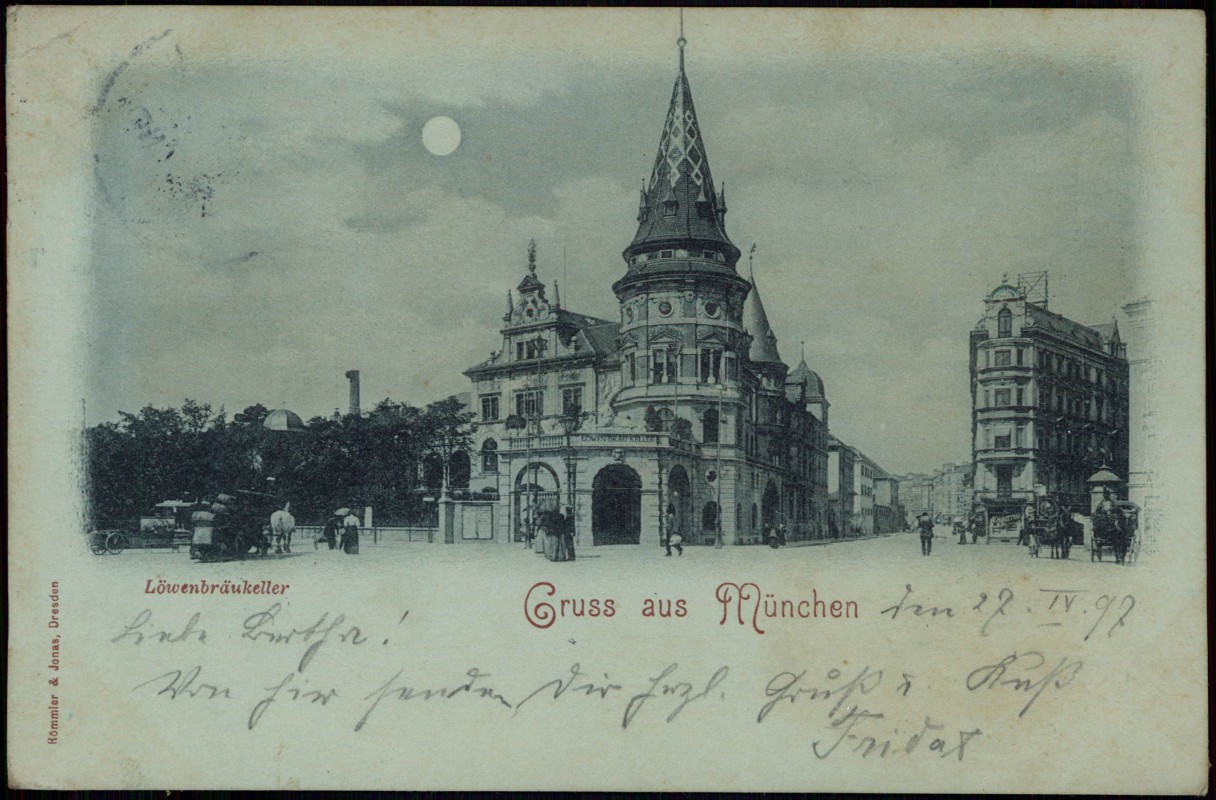 LÖWENBRÄUKELLER
Löwenbräukeller
Gruss aus München den 27. IV. 97
Liebe Bertha!
Von hier senden Dir hrzl. Gruß u Kuß
Römmler & Jonas, Dresden